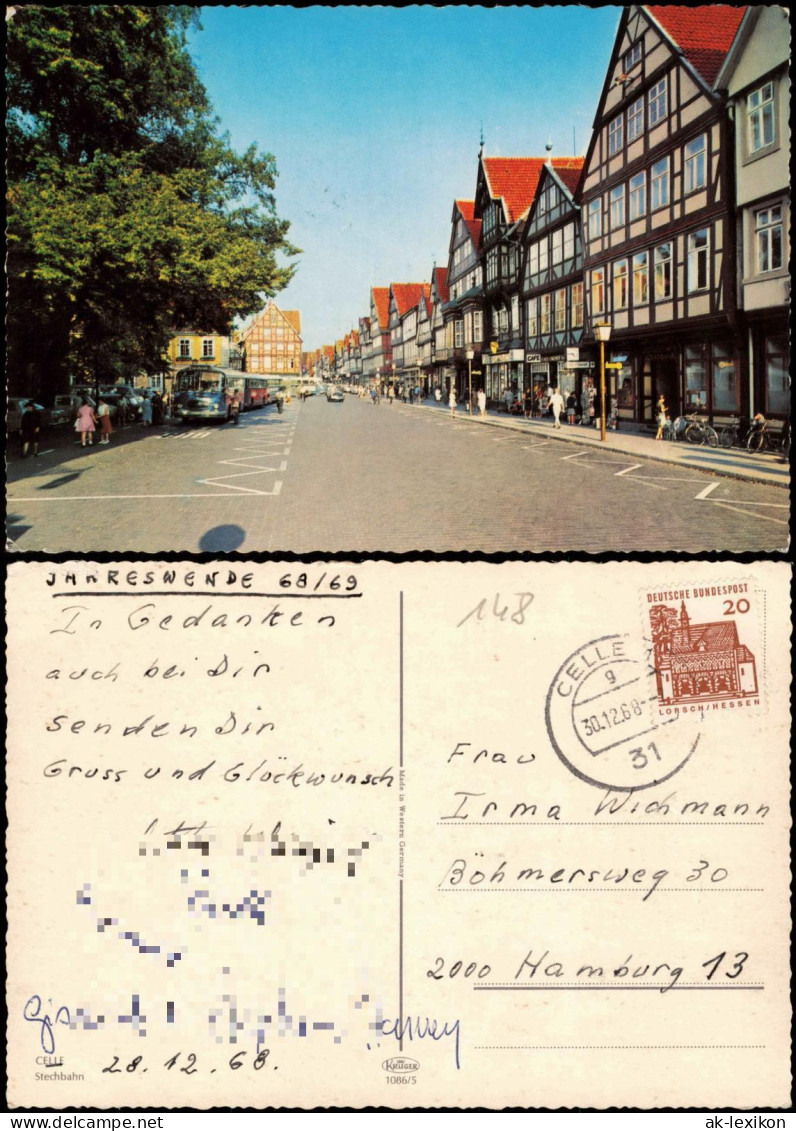 CAFE
JAHRESWENDE 68/69
In Gedanken
auch bei Dir
senden Dir
Gruss und Glöckwunsch
28.12.68.
CELLE
Stechbahn
Made in Western Germany
KRÜGER
1086/5
148
DEUTSCHE BUNDESPOST
20
LORSCH/HESSEN
CELLE
g
30.12.68-
31
Frau
Irma Wichmann
Böhmersweg 30
2000 Hamburg 13
ak-lexikon